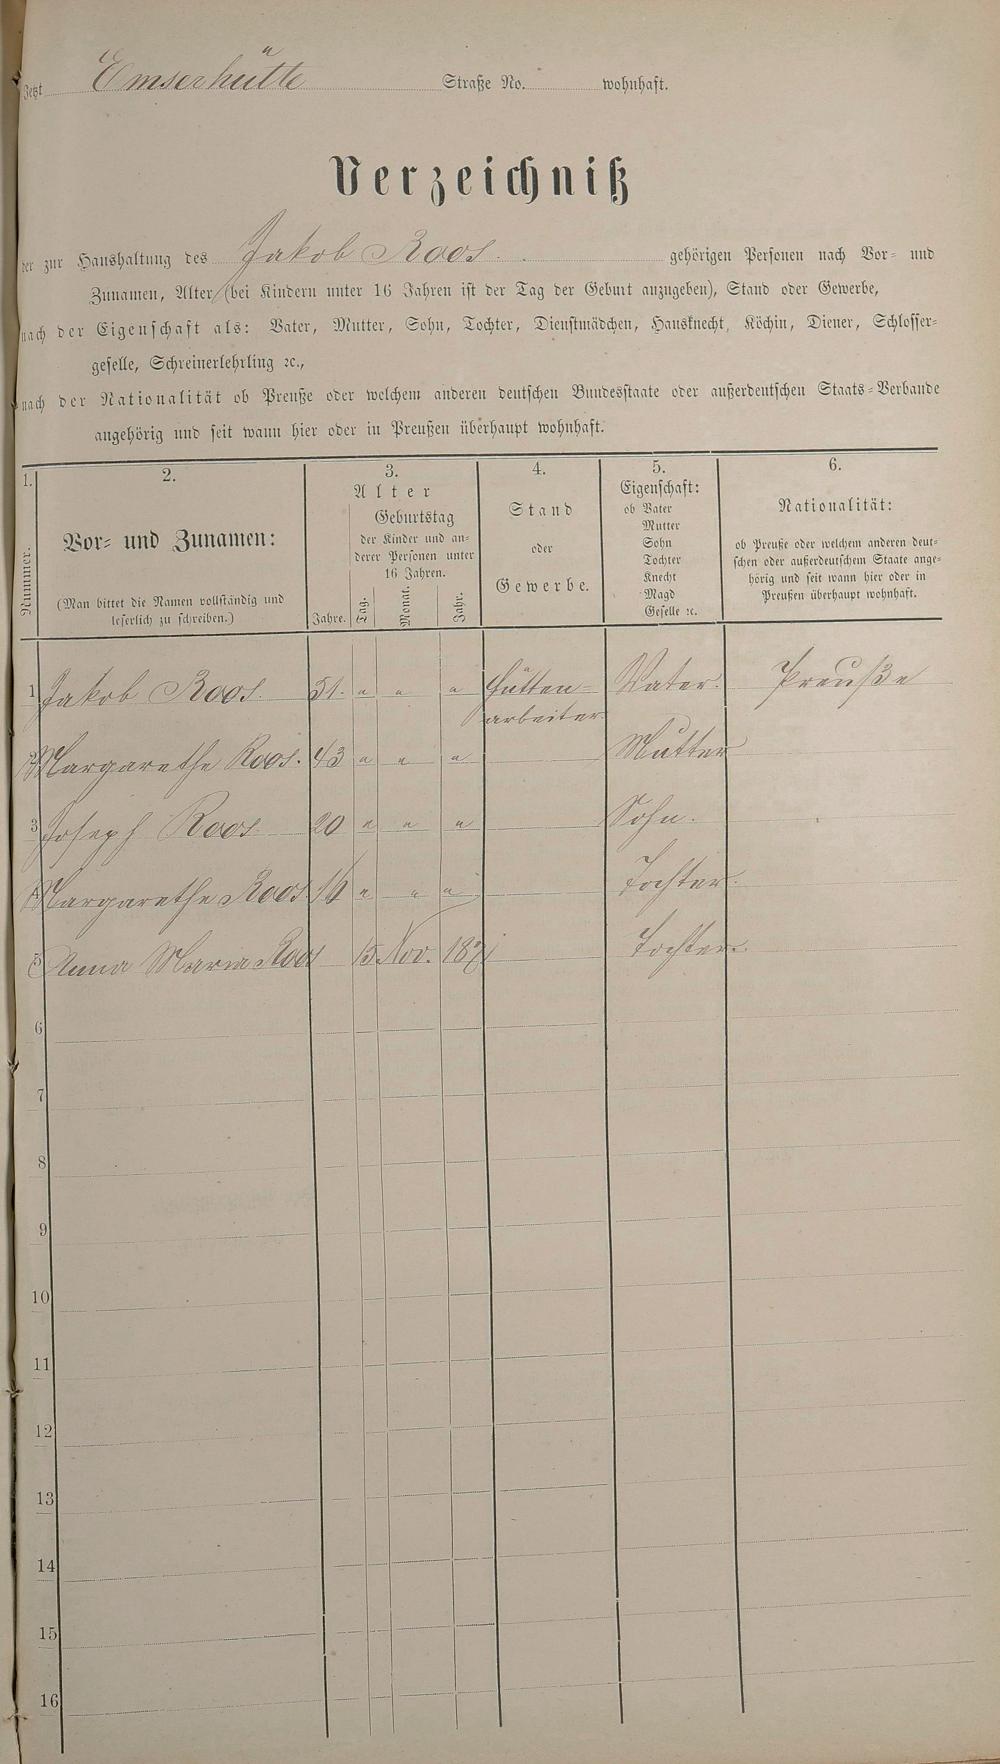 Jetzt Emserhütte Straße No. wohnhaft.
Verzeichniß
der zur Haushaltung des Jakob Roos. gehörigen Personen nach Vor- und
Zunamen, Alter (bei Kindern unter 16 Jahren ist der Tag der Geburt anzugeben), Stand oder Gewerbe,
nach der Eigenschaft als: Vater, Mutter, Sohn, Tochter, Dienstmädchen, Hausknecht, Köchin, Diener, Schlosser-
geselle, Schreinerlehrling ꝛc.,
nach der Nationalität ob Preuße oder welchem anderen deutschen Bundesstaate oder außerdeutschen Staats-Verbande
angehörig und seit wann hier oder in Preußen überhaupt wohnhaft.
1.
Nummer.
2.
Vor- und Zunamen:
(Man bittet die Namen vollständig und
leserlich zu schreiben.)
3.
Alter
Geburtstag
der Kinder und an-
derer Personen unter
16 Jahren.
Jahre. Tag. Monat. Jahr.
4.
Stand
oder
Gewerbe.
5.
Eigenschaft:
ob Vater
Mutter
Sohn
Tochter
Knecht
Magd
Geselle ꝛc.
6.
Nationalität:
ob Preuße oder welchem anderen deut-
schen oder außerdeutschem Staate ange-
hörig und seit wann hier oder in
Preußen überhaupt wohnhaft.
1 Jakob Roos. 51. " " " Hütten- Vater. Preuße
arbeiter.
2 Margarethe Roos. 43 " " " Mutter
3 Joseph Roos 20 " " " Sohn.
4 Margarethe Roos 16 " " " Tochter.
5 Anna Maria Roos 15. Nov. 1871 Tochter.
6
7
8
9
10
11
12
13
14
15
16